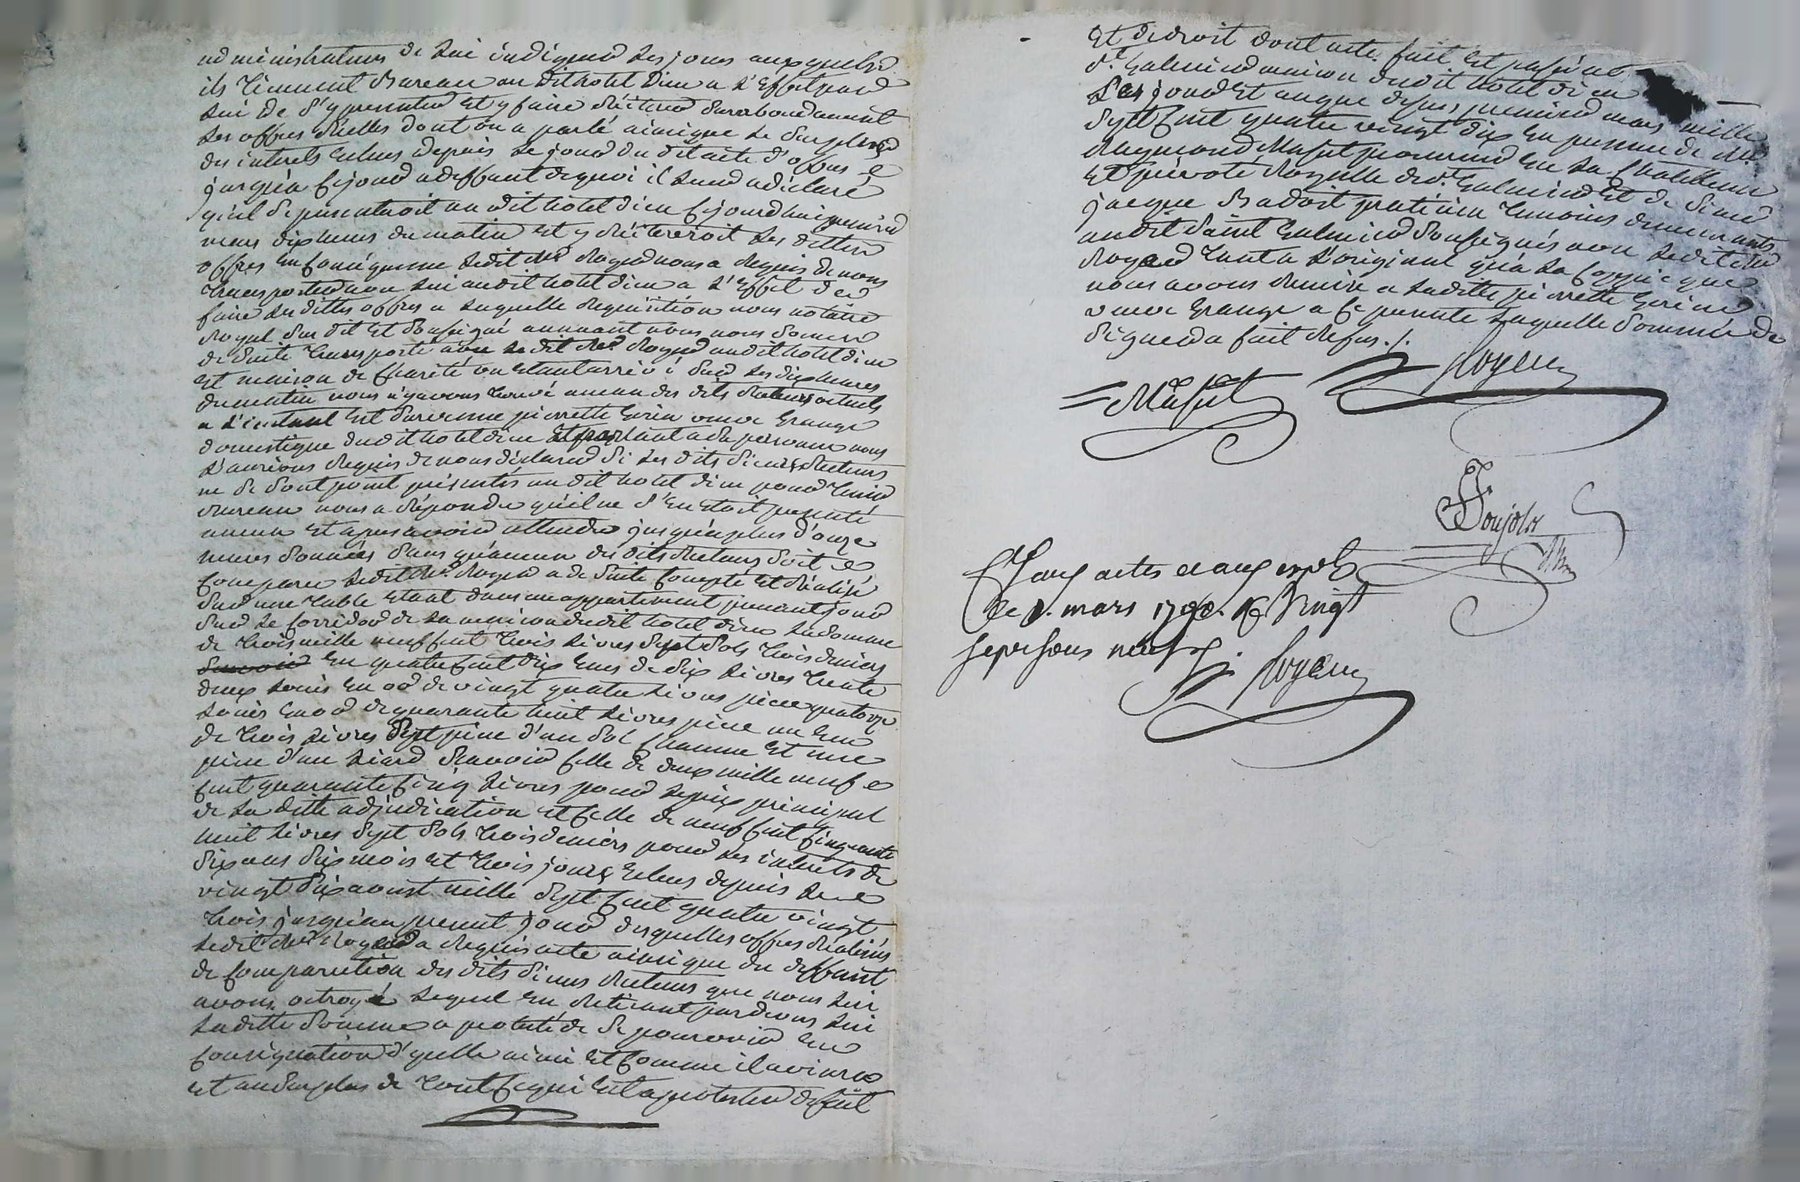 administrateurs de lui indiquer les jours auxquels
ils tiennent Bureau au dit hotel Dieu a l'Effet par
lui de s'y presenter Et y faire réiterer surabondament
les offres réelles dont on a parlé ainsi que le surplus
des interets Echus depuis le jour du dit acte d'offres
jusqu'a ce jour a deffaut de quoi il leur a déclaré
qu'il se presenteroit au dit hotel dieu ce jourd'hui premier
mars dix heures du matin Et y réitereroit les dittes
offres En conséquence ledit Royer nous a requis de nous
transporter avec lui audit hotel dieu a l'Effet de
faire lesdittes offres a laquelle requisition nous notaire
Royal susdit Et soussigné nous sommes
de suite transporté avec le dit Royer audit hotel dieu
Et maison de charité ou Etant arrivé sur les dix heures
du matin nous n'y avons trouvé aucun des dits Recteurs actuels
a l'instant Est survenue pierrette veuve Grange
domestique dudit hotel dieu Et parlant a sa personne nous
l'aurions requis de nous déclarer si les dits sieurs Recteurs
ne se sont point présentés au dit hotel dieu pour tenir
Bureau nous a répondu qu'il ne s'en Etoit presenté
aucun Et apres avoir attendu jusqu'a plus d'onze
heures sonnées sans qu'aucun des dits Recteurs soit
comparu ledit Royer a de suite compté Et réalisé
sur une table Etant dans un appartement prenant jour
sur le corridor de la maison dudit hotel dieu la somme
de trois mille neuf cent trois livres sept sols trois deniers
En quatre cent dix Ecus de six livres trente
deux louis En or de vingt quatre livres piece quatorze
louis En or de quarante huit livres piece un Ecu
de trois livres sept piece d'un sol chacune Et une
piece d'un liard Scavoir celle de deux mille neuf
cent quarante cinq livres pour le prix principal
de la ditte adjudication Et celle de neuf cent cinquante
huit livres sept sols trois deniers pour les interets de
six ans six mois Et trois jours Echus depuis le
vingt six aoust mille sept cent quatre vingt
trois jusqu'au present jour desquelles offres réalisées
ledit Royer a requis acte ainsi que du deffaut
de comparution des dits sieurs Recteurs que nous lui
avons octroyé lequel En retirant pardevers lui
laditte somme a protesté de se pourvoir En
consignation d'ycelle ainsi Et comme il avisera
Et au surplus de tout ce qui Est a protester de fait
Et de droit dont acte fait Et passé au
dit Galmier maison dudit hotel dieu
Les jour Et an que dessus premier mars mille
sept cent quatre vingt dix En presence de
Raymond Massit procureur En la chatellenie
Et prévoté Royalle de St Galmier Et de sieur
jacque Badoit praticien temoins demeurants
audit Saint Galmier soussignés avec ledit
Royer tant a l'original qu'a la coppie que
nous avons remise a laditte pierrette
veuve Grange a ce presente laquelle sommée de
signer a fait refus ./.
Massit Royer
Poujols
aux actes et aux exploits
le 1. mars 1790. R vingt
sept sous neuf d.
Royer